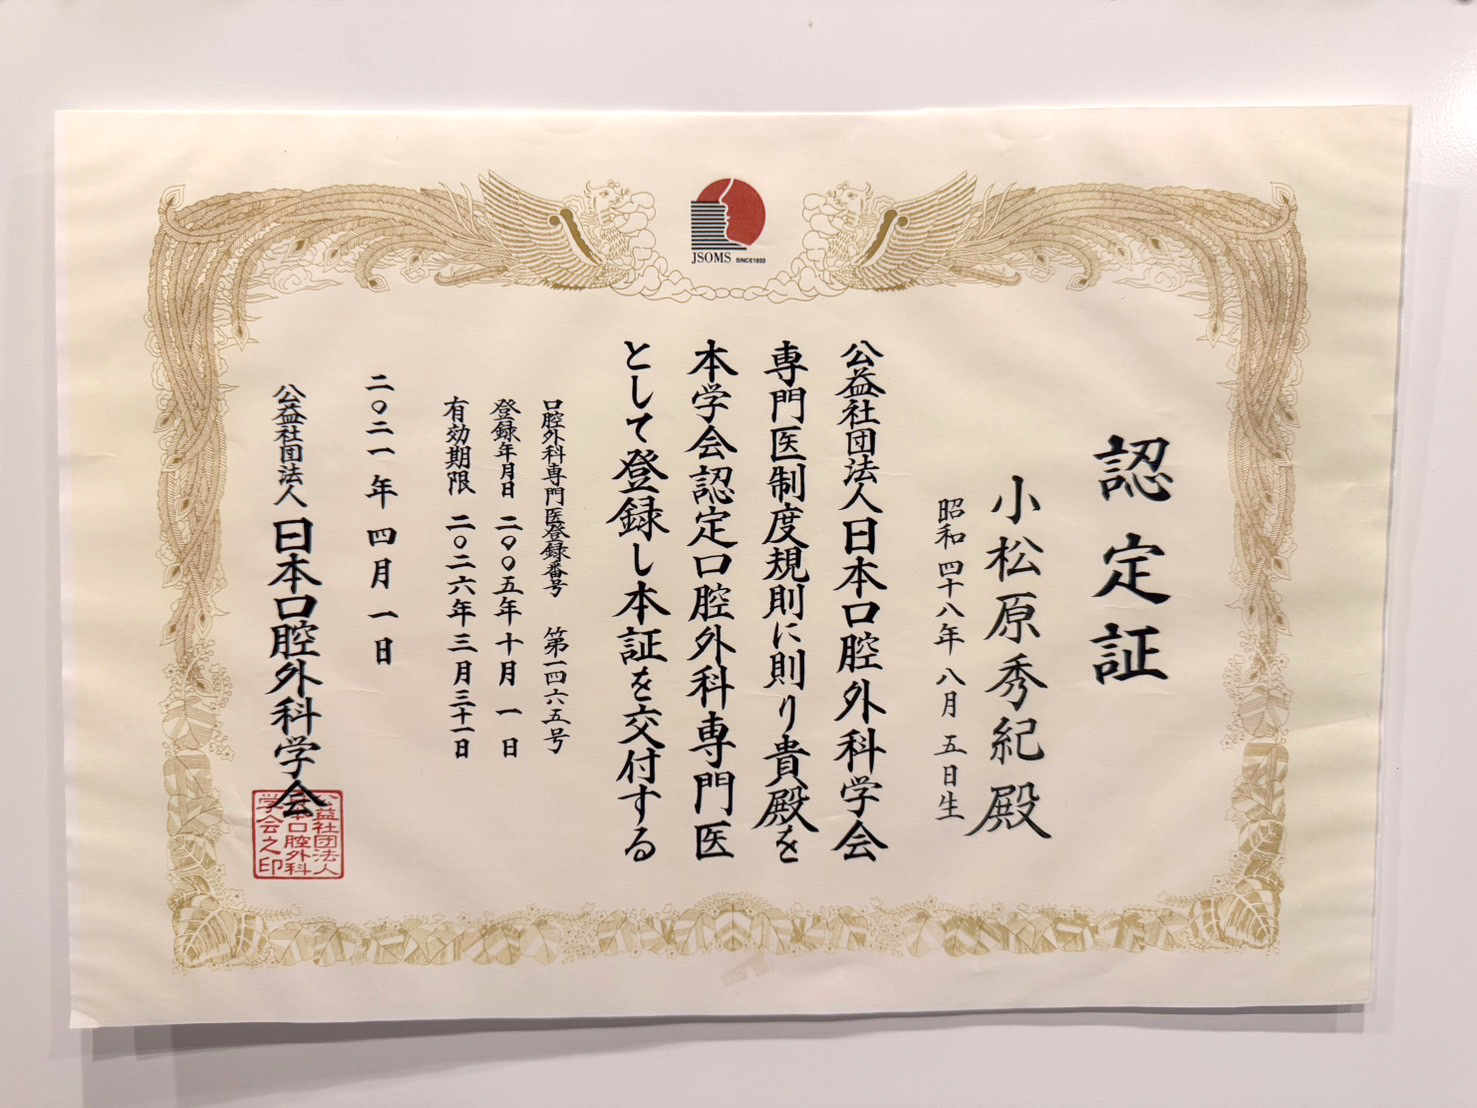 JSOMS SINCE1933
認定証
小松原秀紀殿
昭和四十八年八月五日生
公益社団法人日本口腔外科学会
専門医制度規則に則り貴殿を
本学会認定口腔外科専門医
として登録し本証を交付する
口腔外科専門医登録番号 第一四六五号
登録年月日 二〇〇五年十月一日
有効期限 二〇二六年三月三十一日
二〇二一年四月一日
公益社団法人日本口腔外科学会
公益社団法人
日本口腔外科
学会之印